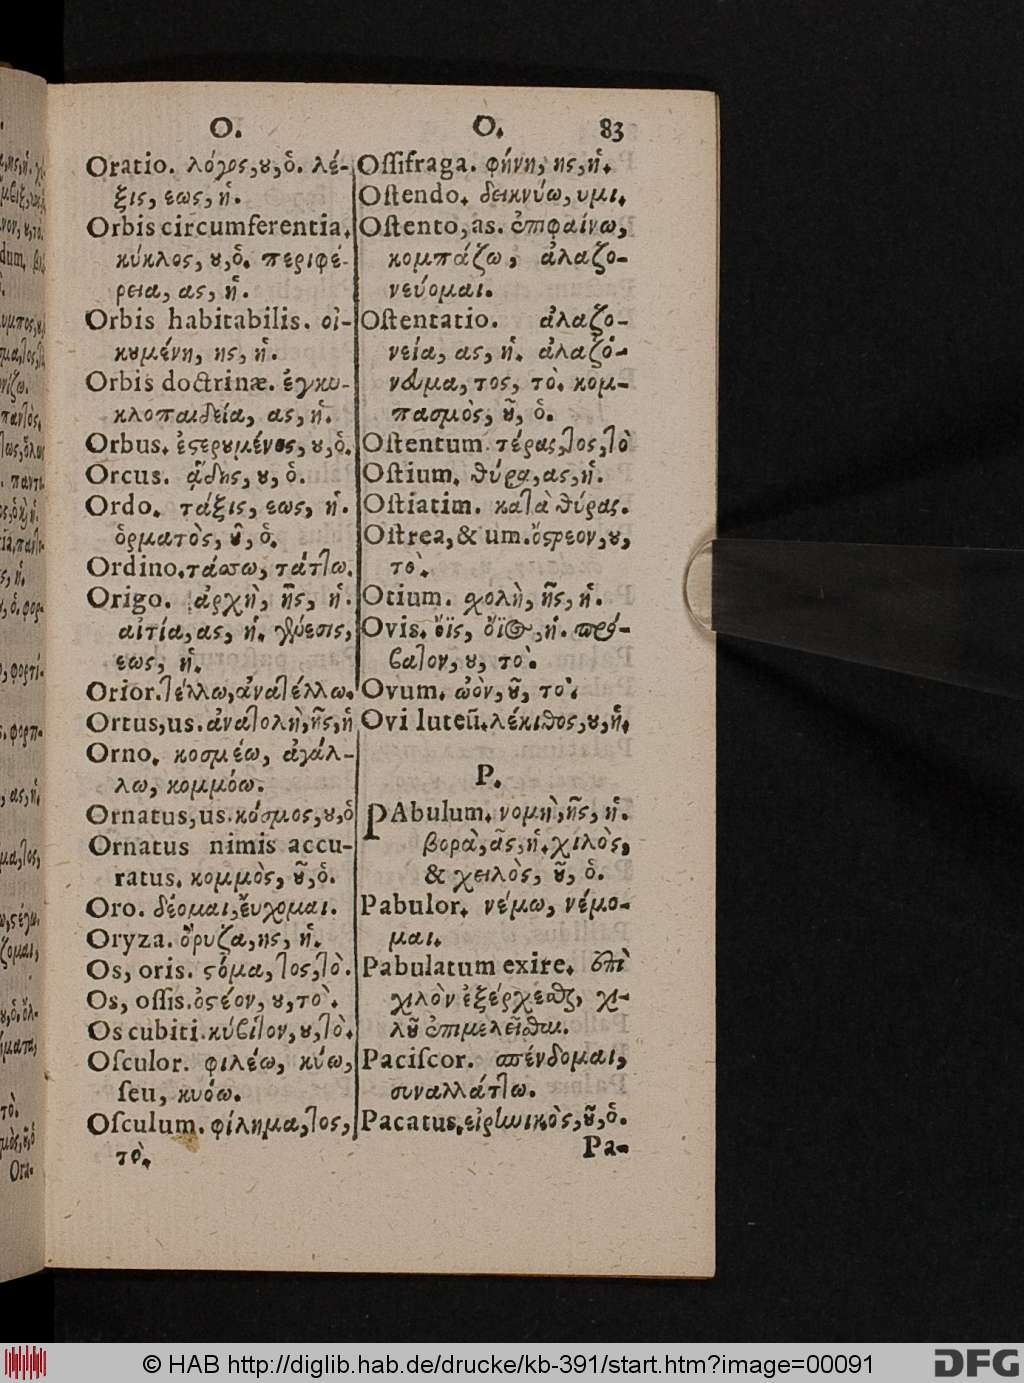 O.
O.
83
Oratio. λόγος, ȣ, ὁ. λέ-
ξις, εως, ἡ.
Orbis circumferentia.
κύκλος, ȣ, ὁ. περιφέ-
ρεια, ας, ἡ.
Orbis habitabilis. οἰ-
κȣμένη, ης, ἡ.
Orbis doctrinæ. ἐγκυ-
κλοπαιδεία, ας, ἡ.
Orbus. ἐϛερημένος, ȣ, ὁ.
Orcus. ᾅδης, ȣ, ὁ.
Ordo. τάξις, εως, ἡ.
ὁρματὸς, ȣ͂, ὁ.
Ordino. τάσσω, τάττω.
Origo. ἀρχὴ, ῆς, ἡ.
αἰτία, ας, ἡ. γένεσις,
εως, ἡ.
Orior. τέλλω, ἀνατέλλω.
Ortus, us. ἀνατολὴ, ῆς, ἡ
Orno. κοσμέω, ἀγάλ-
λω, κομμόω.
Ornatus, us. κόσμος, ȣ, ὁ
Ornatus nimis accu-
ratus. κομμὸς, ȣ͂, ὁ.
Oro. δέομαι, εὔχομαι.
Oryza. ὄρυζα, ης, ἡ.
Os, oris. ϛόμα, τος, τὸ.
Os, oſſis. ὀϛέον, ȣ, τὸ.
Os cubiti. κύβιτον, ȣ, τὸ.
Oſculor. φιλέω, κύω,
ſeu, κυόω.
Oſculum. φίλημα, τος,
τὸ.
Oſſifraga. φήνη, ης, ἡ.
Oſtendo. δεικνύω, υμι.
Oſtento, as. ἐπιφαίνω,
κομπάζω, ἀλαζο-
νεύομαι.
Oſtentatio. ἀλαζο-
νεία, ας, ἡ. ἀλαζό-
νευμα, τος, τὸ. κομ-
πασμὸς, ȣ͂, ὁ.
Oſtentum. τέρας, τος, τὸ
Oſtium. θύρα, ας, ἡ.
Oſtiatim. κατὰ θύρας.
Oſtrea, & um. ὄϛρεον, ȣ,
τὸ.
Otium. σχολὴ, ῆς, ἡ.
Ovis. ὄϊς, ὄϊος, ἡ. πρό-
βατον, ȣ, τὸ.
Ovum. ὠὸν, ȣ͂, τὸ.
Ovi luteū. λέκιθος, ȣ, ἡ.
P.
PAbulum. νομὴ, ῆς, ἡ.
βορὰ, ᾶς, ἡ. χιλὸς,
& χειλὸς, ȣ͂, ὁ.
Pabulor. νέμω, νέμο-
μαι.
Pabulatum exire. ἐπὶ
χιλὸν ἐξέρχεσθαι, χι-
λȣ͂ ἐπιμελεῖσθαι.
Paciſcor. σπένδομαι,
συναλλάττω.
Pacatus. εἰρηνικὸς, ȣ͂, ὁ.
Pa-
Ora-
© HAB http://diglib.hab.de/drucke/kb-391/start.htm?image=00091
DFG